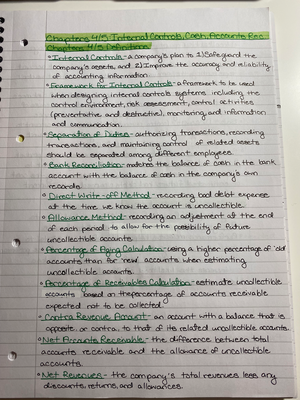 Chapters 4/5 Internal Controls, Cash, Accounts Rec
Chapters 4/5 Definitions
• Internal Controls - a company's plan to 1) Safeguard the
company's assets and 2) Improve the accuracy and reliability
of accounting information.
• Framework for Internal Controls - a framework to be used
when designing internal controls systems including the
control environment, risk assessment, control activities
(preventative and destructive), monitoring, and information
and communication.
• Separation of Duties - authorizing transactions, recording
transactions, and maintaining control of related assets
should be separated among different employees.
• Bank Reconciliation - matches the balance of cash in the bank
account with the balance of cash in the company's own
records.
• Direct Write-off Method - recording bad debt expense
at the time we know the account is uncollectible.
• Allowance Method - recording an adjustment at the end
of each period to allow for the possibility of future
uncollectible accounts.
• Percentage of Aging Calculation - using a higher percentage of "old"
accounts than for "new" accounts when estimating
uncollectible accounts.
• Percentage of Receivables Calculation - estimate uncollectible
accounts based on the percentage of accounts receivable
expected not to be collected
• Contra Revenue Amount - an account with a balance that is
opposite, or contra, to that of its related uncollectible accounts.
• Net Accounts Receivable - the difference between total
accounts receivable and the allowance of uncollectible
accounts.
• Net Revenues - the company's total revenues less any
discounts, returns, and allowances.